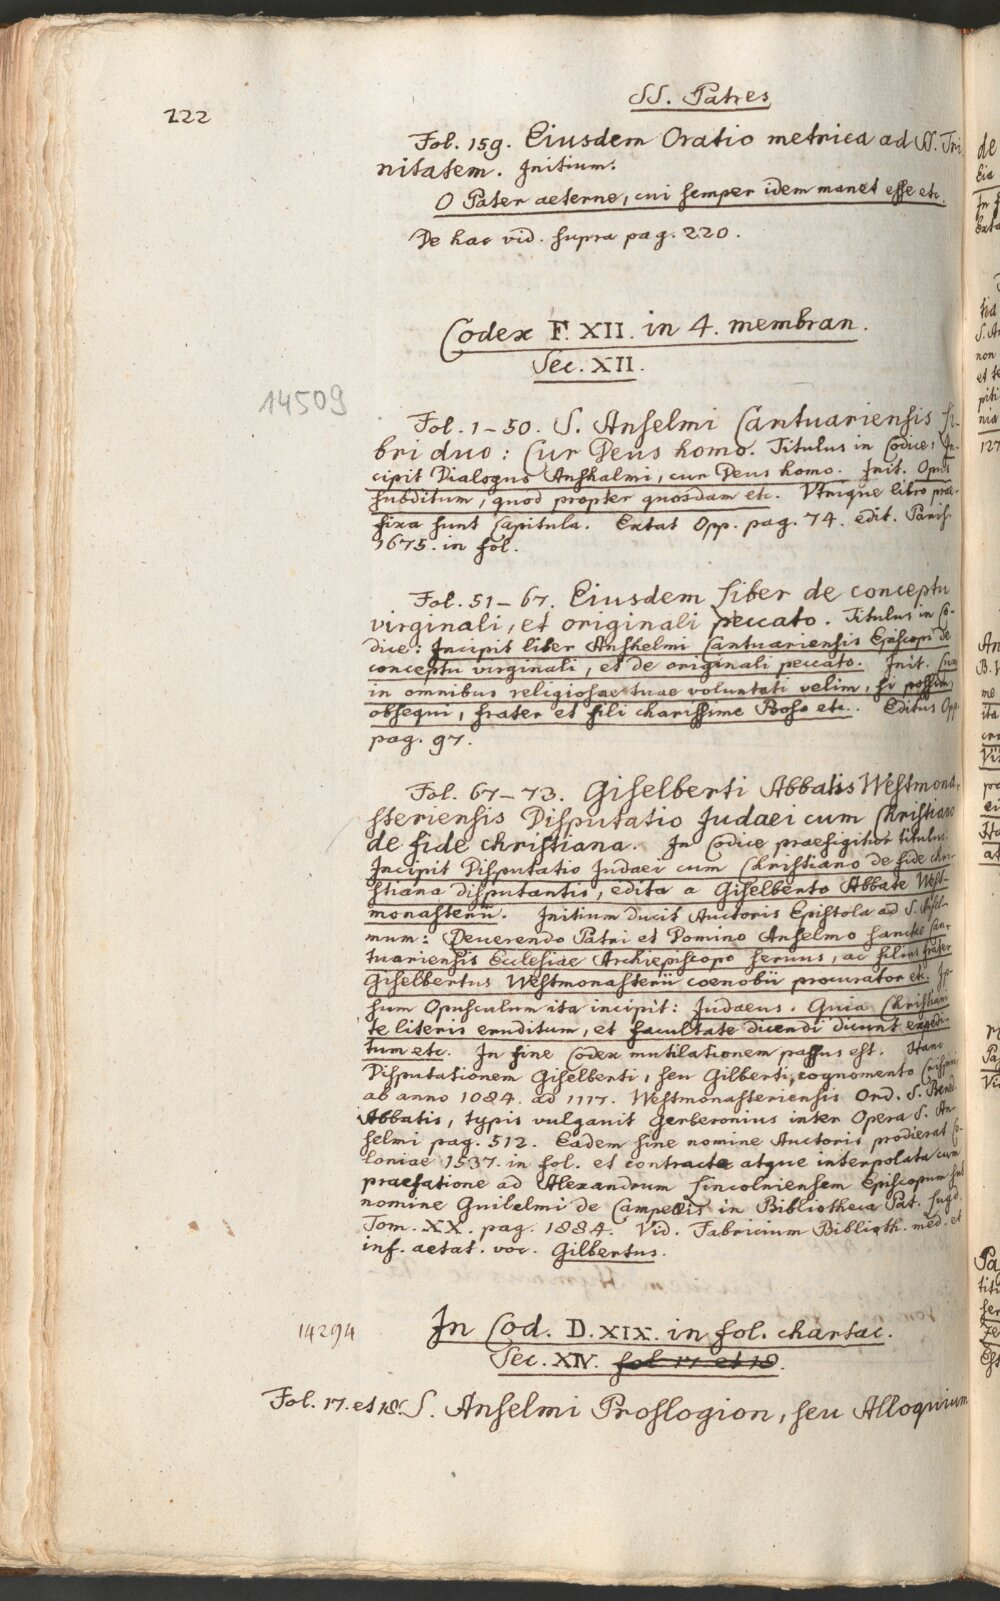 SS. Patres
222
Fol. 159. Eiusdem Oratio metrica ad SS. Tri
nitatem. Initium.
O Pater aeterne, cui semper idem manet esse etc.
De hac vid. supra pag. 220.
Codex F. XII. in 4. membran.
Sec. XII.
14509
Fol. 1-50. S. Anselmi Cantuariensis Li-
bri duo: Cur Deus homo. Titulus in Codice: In-
cipit Dialogus Anshalmi, cur Deus homo. Init. Opus
subditum, quod propter quosdam etc. Vtrique libro prae-
fixa sunt Capitula. Extat Opp. pag. 74. edit. Paris.
1675. in fol.
Fol. 51-67. Eiusdem Liber de conceptu
virginali, et originali peccato. Titulus in Co-
dice: Incipit liber Anshelmi Cantuariensis Episcopi de
conceptu virginali, et de originali peccato. Init. Cum
in omnibus religiosae tuae voluntati velim, si possim,
obsequi, frater et fili charissime Boso etc. Editus Opp.
pag. 97.
Fol. 67-73. Giselberti Abbatis Westmona-
steriensis Disputatio Judaei cum Christiano
de fide christiana. In Codice praefigitur titulus:
Incipit Disputatio Judaei cum Christiano de fide chri-
stiana disputantis, edita a Giselberto Abbate West-
monasterii. Initium ducit Auctoris Epistola ad S. Ansel-
mum: Reuerendo Patri et Domino Anselmo sanctae Can-
tuariensis Ecclesiae Archiepiscopo seruus, ac filius frater
Giselbertus Westmonasterii coenobii procurator etc. Ip-
sum Opusculum ita incipit: Judaeus. Quia Christiani
te literis eruditum, et facultate dicendi dicunt expedi-
tum etc. In fine Codex mutilationem passus est. Hanc
Disputationem Giselberti, seu Gilberti, cognomento Crispini,
ab anno 1084. ad 1117. Westmonasteriensis Ord. S. Bened.
Abbatis, typis vulgauit Gerberonius inter Opera S. An-
selmi pag. 512. Eadem sine nomine Auctoris prodierat Co-
loniae 1537. in fol. et contracta atque interpolata cum
praefatione ad Alexandrum Lincolniensem Episcopum sub
nomine Guilelmi de Campellis in Bibliotheca Pat. Lugd.
Tom. XX. pag. 1884. Vid. Fabricium Biblioth. med. et
inf. aetat. voc. Gilbertus.
14294
In Cod. D. XIX. in fol. chartac.
Sec. XIV. fol 17 et 18.
Fol. 17. et 18. S. Anselmi Proslogion, seu Alloquium